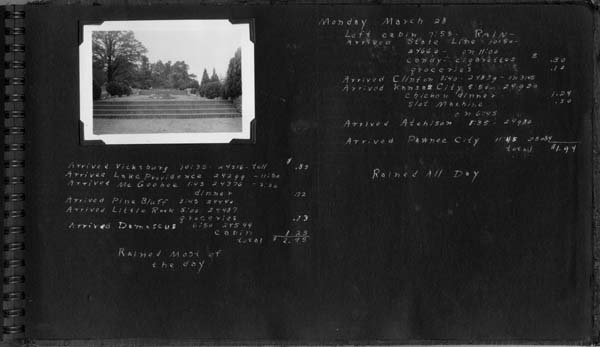 Arrived Vicksburg 10:35 - 24216 - toll $ .85
Arrived Lake Providence 24299 - 11:50
Arrived Mc Geehee 1:45 24376 -
dinner
Arrived Pine Bluff 3:45 24440
Arrived Little Rock 5:00 24487
groceries .73
Arrived Damascus 6:50 24544
Cabin 1.25
total $
Rained Most of
the day
Monday March 28
Left cabin 7:55 - RAIN -
Arrived State Line - 10:50 -
- on
candy - cigarettes $ .30
groceries .10
Arrived Clinton
Arrived Kansas City
Chicken dinner 1.24
Slot Machine .30
on 6:45
Arrived Atchison 8:35 -
Arrived Pawnee City 11:45
total $1.94
Rained All Day